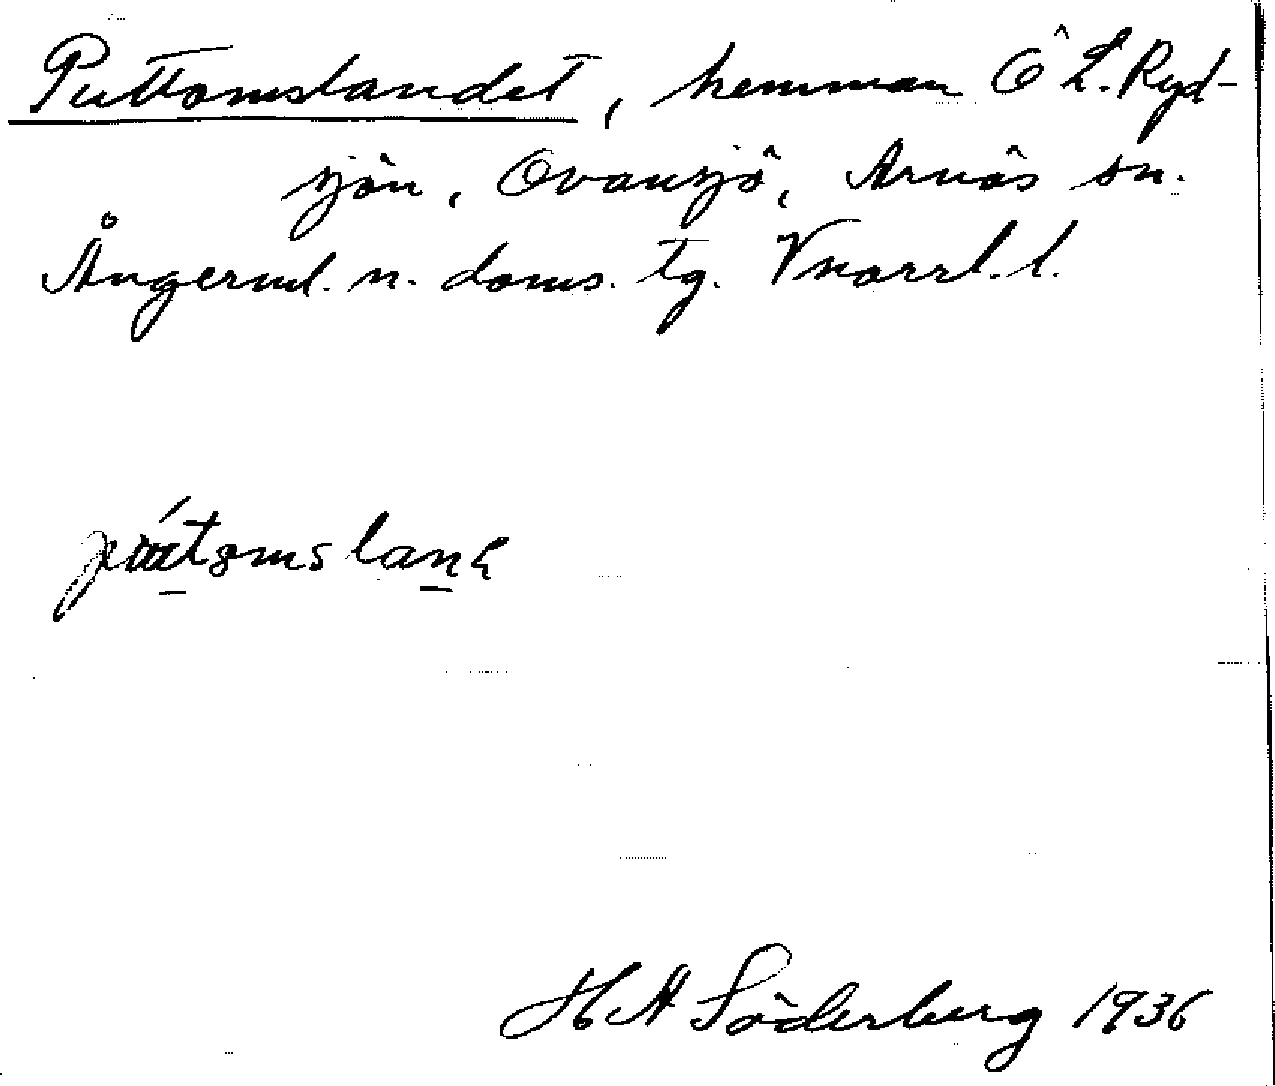 Puttomslandet, hemman Ö L. Ryd-
sjön, Ovansjö, Arnäs sn.
Ångerml. n. doms. tg. Vnorrl. l.
H A Söderberg 1936